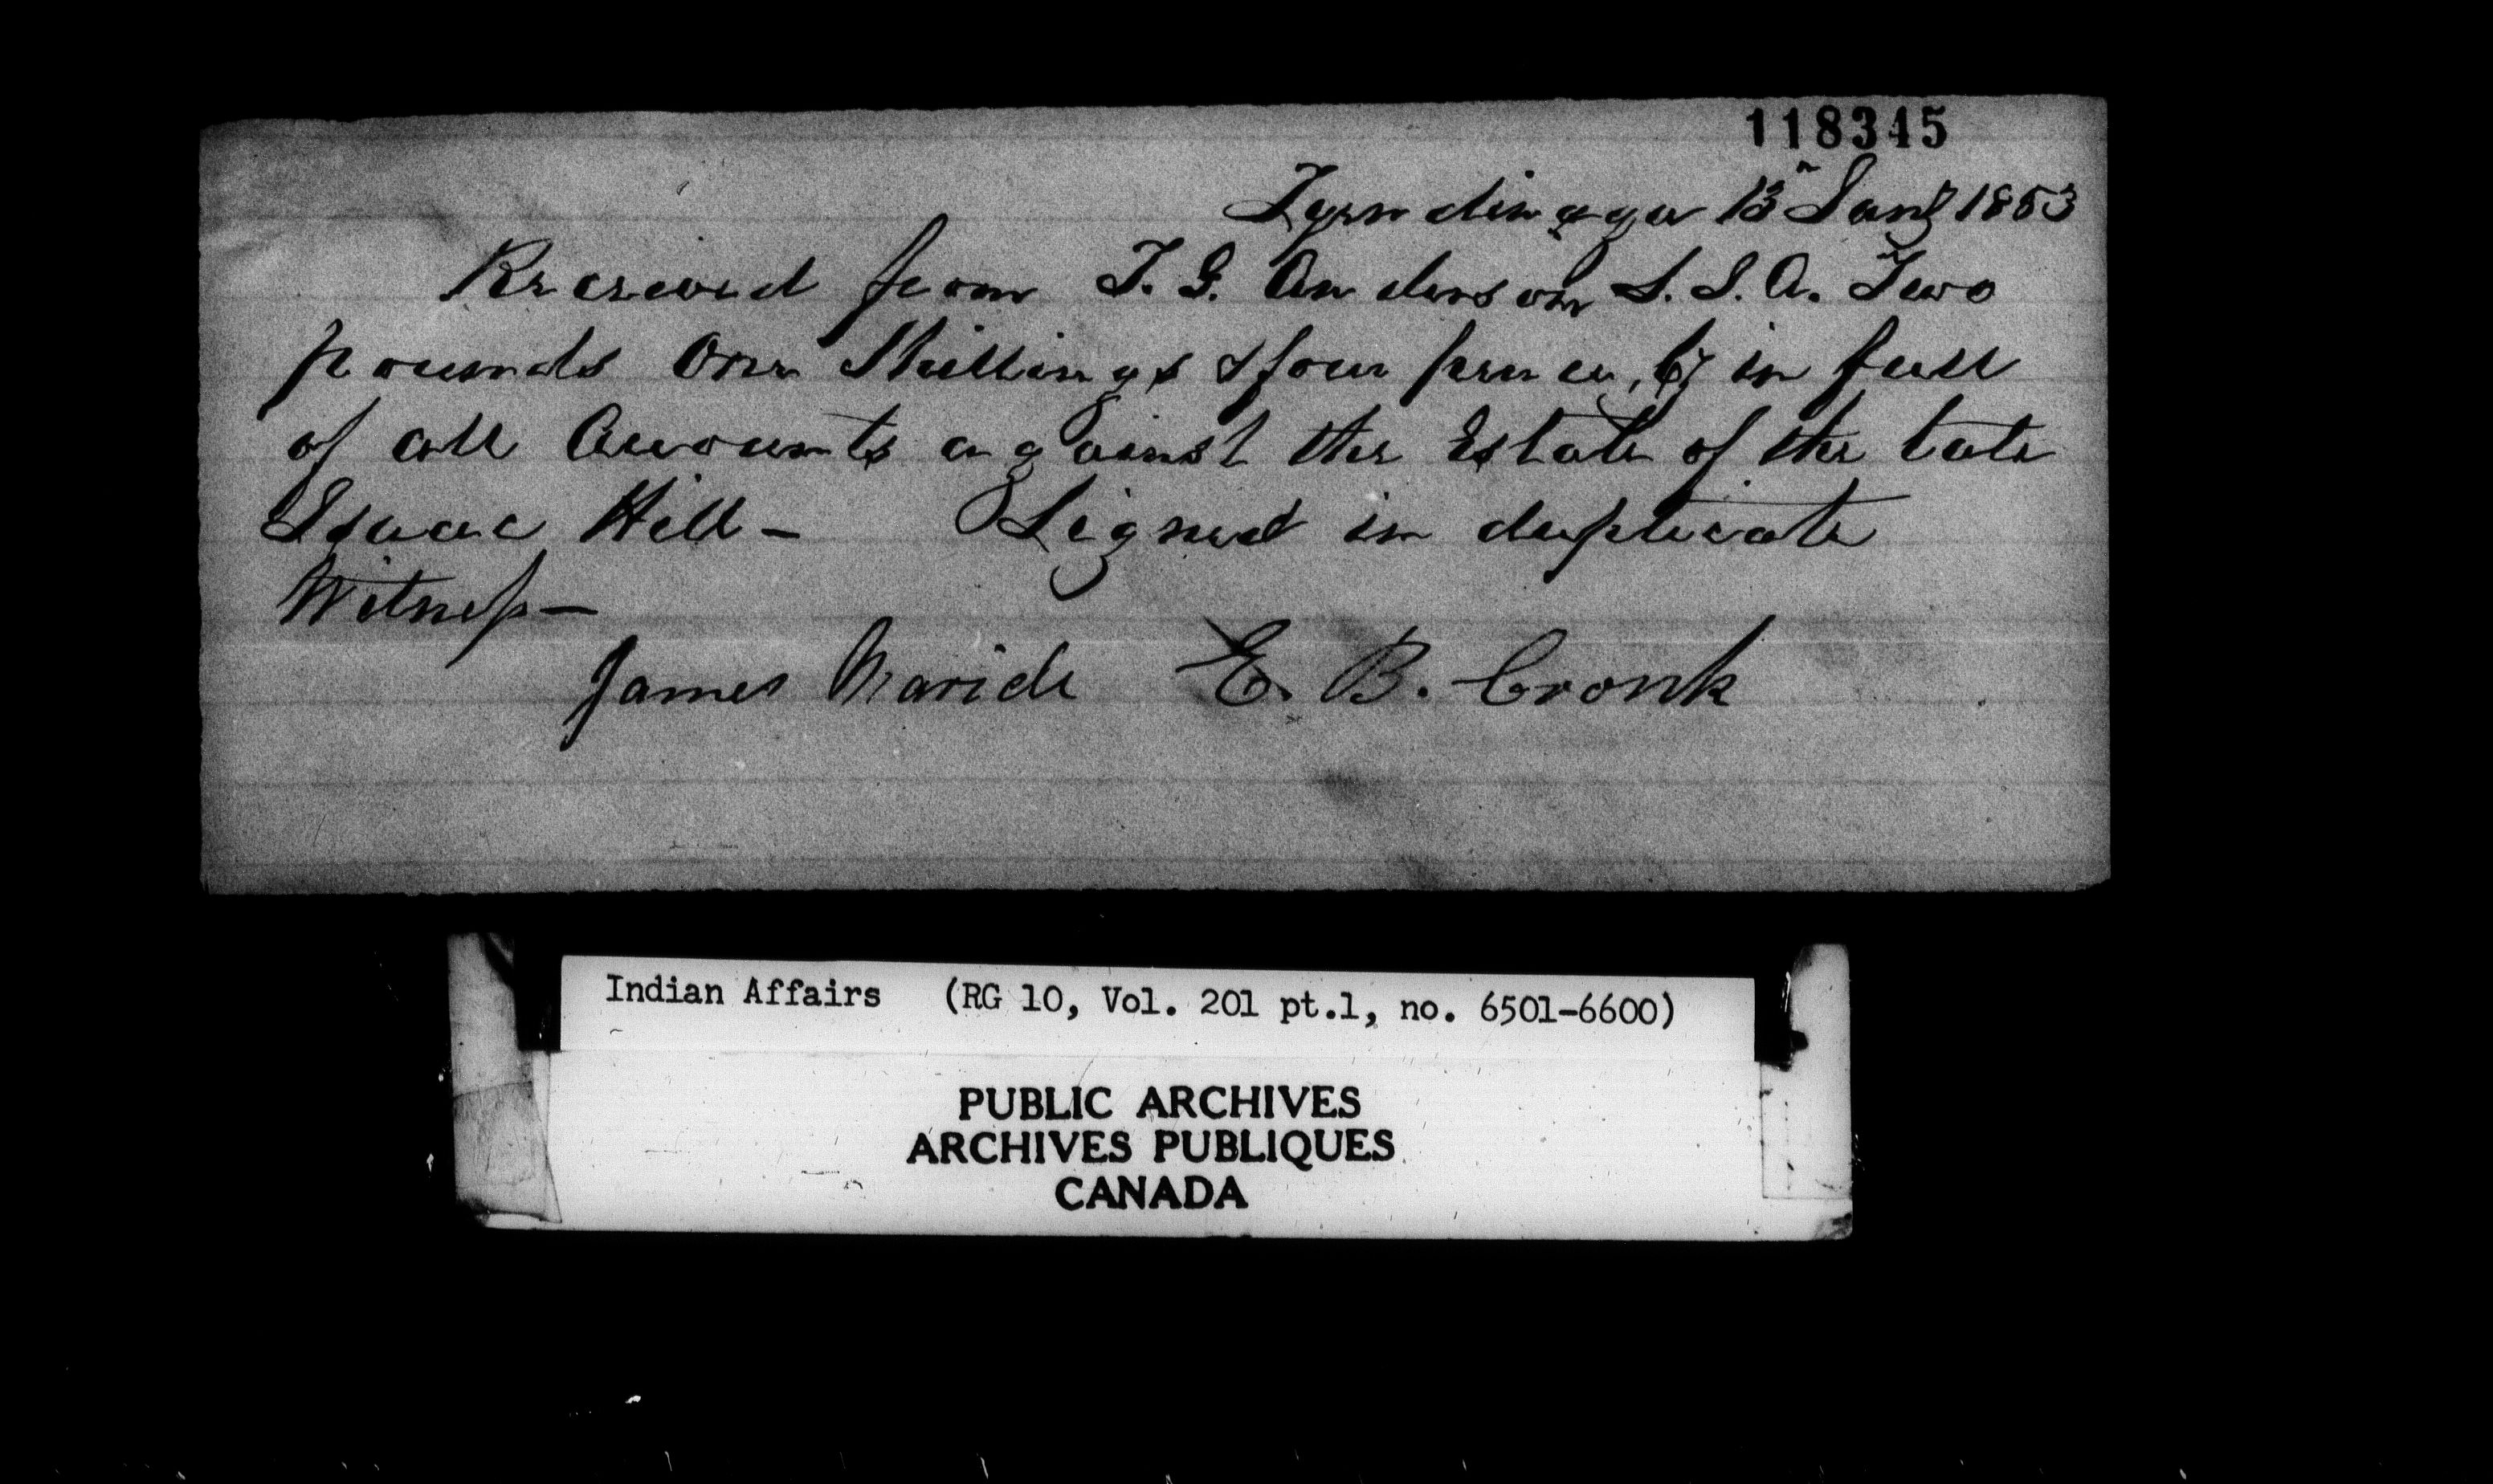 118345
Tyendinaga 13th Jany 1853
Received from T. G. Anderson S. I. A. Two
pounds One Shillings & four pence, Cy in full
of all Accounts against the Estate of the late
Isaac Hill – Signed in duplicate
Witness –
James E. B. Cronk
Indian Affairs (RG 10, Vol. 201 pt.1, no. 6501-6600)
PUBLIC ARCHIVES
ARCHIVES PUBLIQUES
CANADA